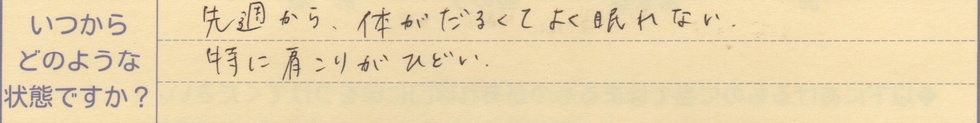 いつから
どのような
状態ですか？
先週から、体がだるくてよく眠れない.
特に肩こりがひどい.